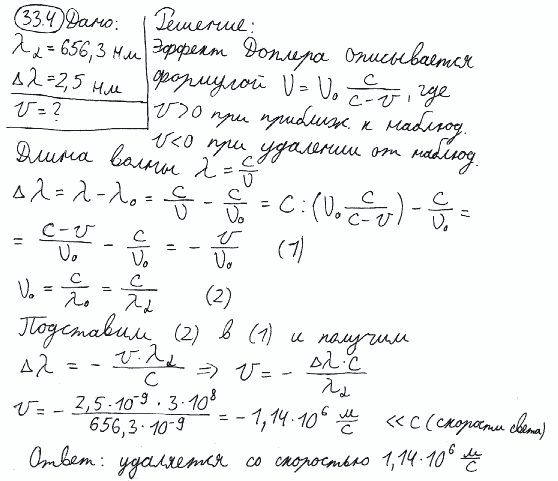 33.4 Дано: Решение:
λ₂ = 656,3 нм Эффект Доплера описывается
Δλ = 2,5 нм формулой ν = ν₀ c/(c-v), где
v = ? v>0 при приближ. к наблюд.
v<0 при удалении от наблюд.
Длина волны λ = c/ν
Δλ = λ - λ₀ = c/ν - c/ν₀ = c : (ν₀ c/(c-v)) - c/ν₀ =
= (c-v)/ν₀ - c/ν₀ = - v/ν₀ (1)
ν₀ = c/λ₀ = c/λ₂ (2)
Подставим (2) в (1) и получим
Δλ = - v·λ₂/c ⇒ v = - Δλ·c/λ₂
v = - 2,5·10⁻⁹ · 3·10⁸/656,3·10⁻⁹ = -1,14·10⁶ м/с << c (скорости света)
Ответ: удаляется со скоростью 1,14·10⁶ м/с